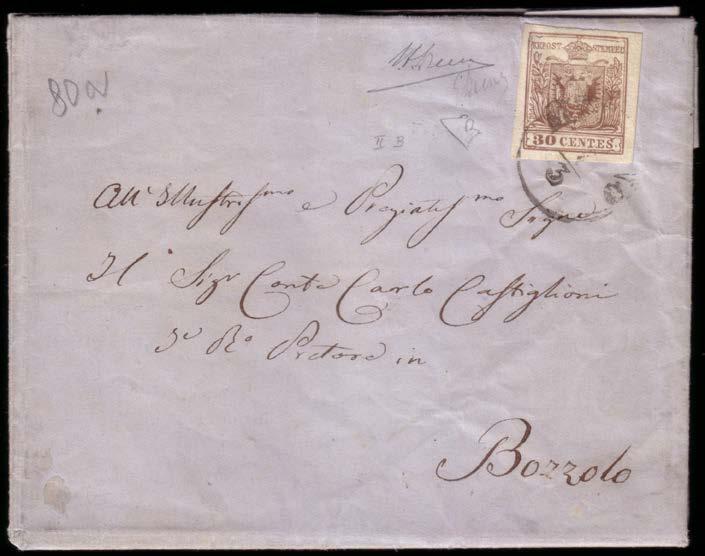 KKPOST-STEMPEL
30 CENTES.
80N
II B
All' Illustrissmo e Pregiatissmo Signe
Il Sigr Conte Carlo Castiglioni
I. R. Pretore in
Bozzolo